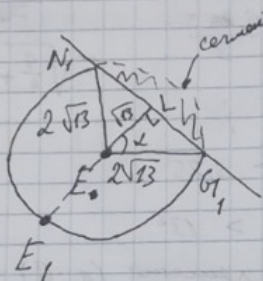 сегмент
N₁
2√13
√13
L
α
E
2√13
G₁
E₁